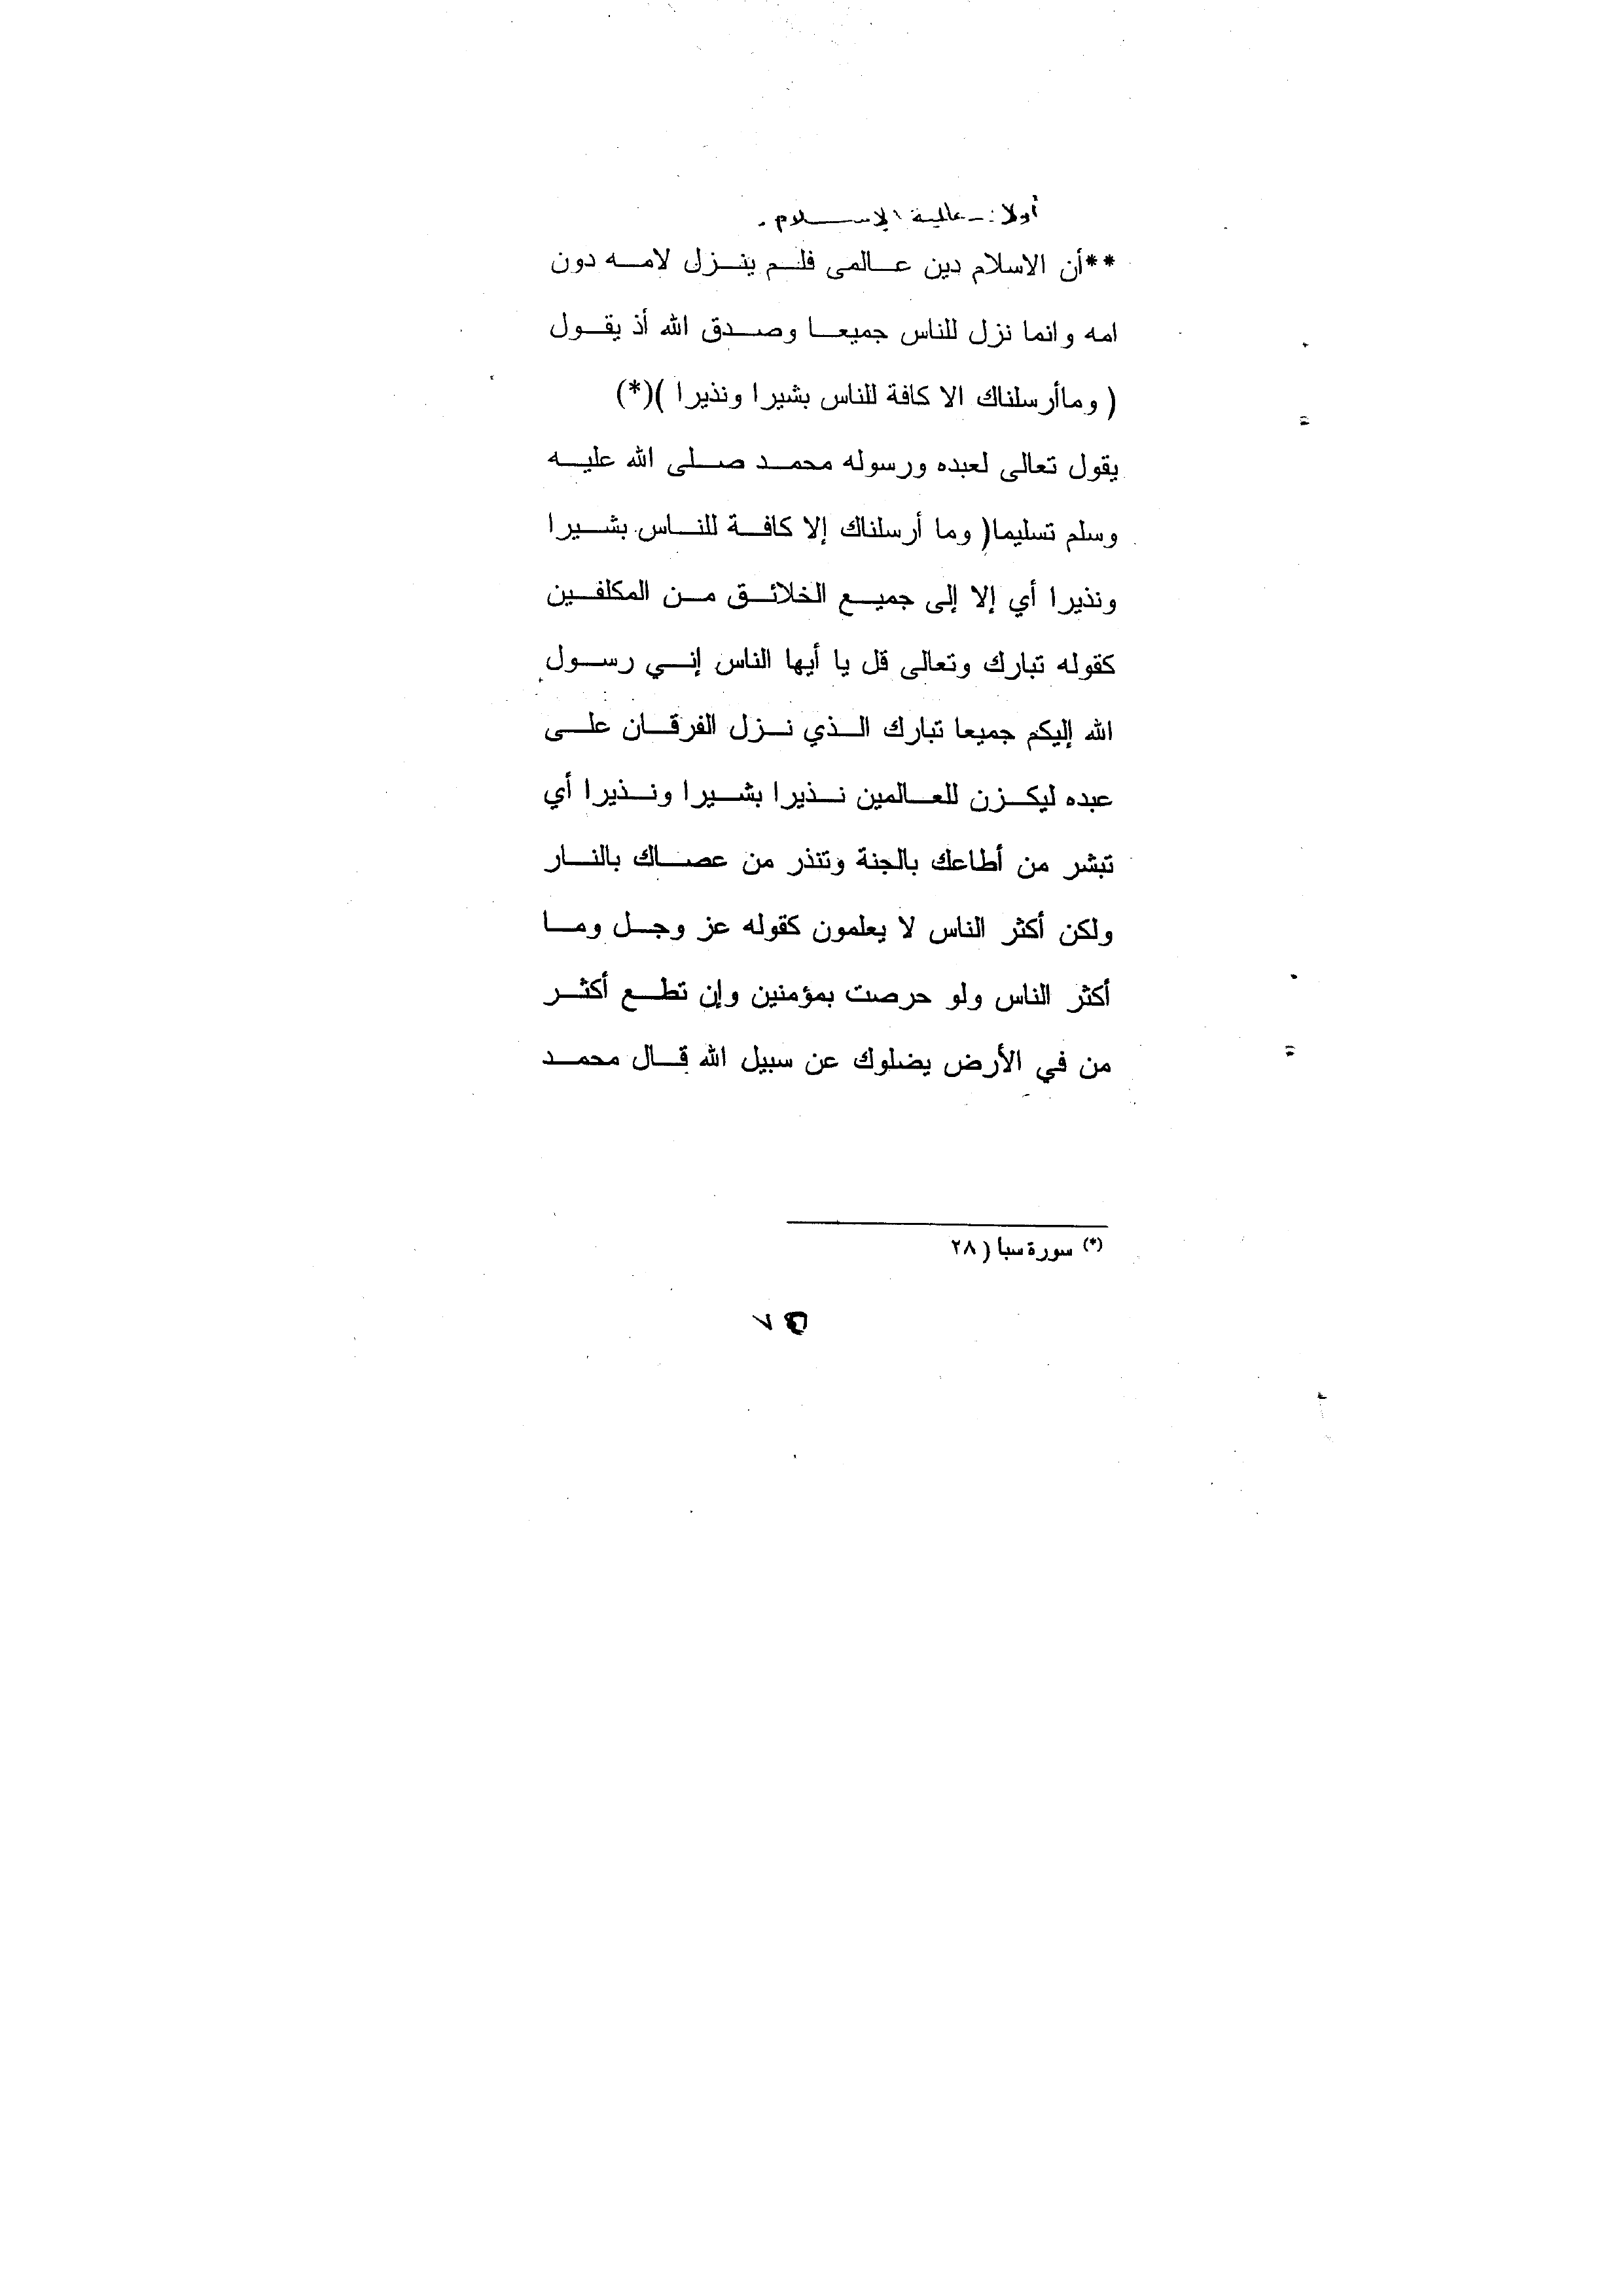 أولا:- عالمية الإسلام.
**أن الاسلام دين عالمى فلم ينزل لامه دون
امه وانما نزل للناس جميعا وصدق الله أذ يقول
( وماأرسلناك الا كافة للناس بشيرا ونذيرا )(*)
يقول تعالى لعبده ورسوله محمد صلى الله عليه
وسلم تسليما( وما أرسلناك إلا كافة للناس بشيرا
ونذيرا أي إلا إلى جميع الخلائق من المكلفين
كقوله تبارك وتعالى قل يا أيها الناس إني رسول
الله إليكم جميعا تبارك الذي نزل الفرقان على
عبده ليكزن للعالمين نذيرا بشيرا ونذيرا أي
تبشر من أطاعك بالجنة وتنذر من عصاك بالنار
ولكن أكثر الناس لا يعلمون كقوله عز وجل وما
أكثر الناس ولو حرصت بمؤمنين وإن تطع أكثر
من في الأرض يضلوك عن سبيل الله قال محمد
(*) سورة سبأ ( ٢٨